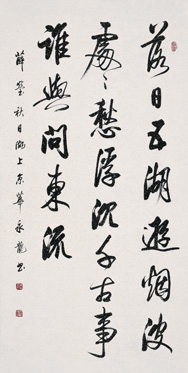 落日五湖遊烟波
處〻愁浮沉千古事
誰與問東流
薛瑩秋日湖上東華永龍書